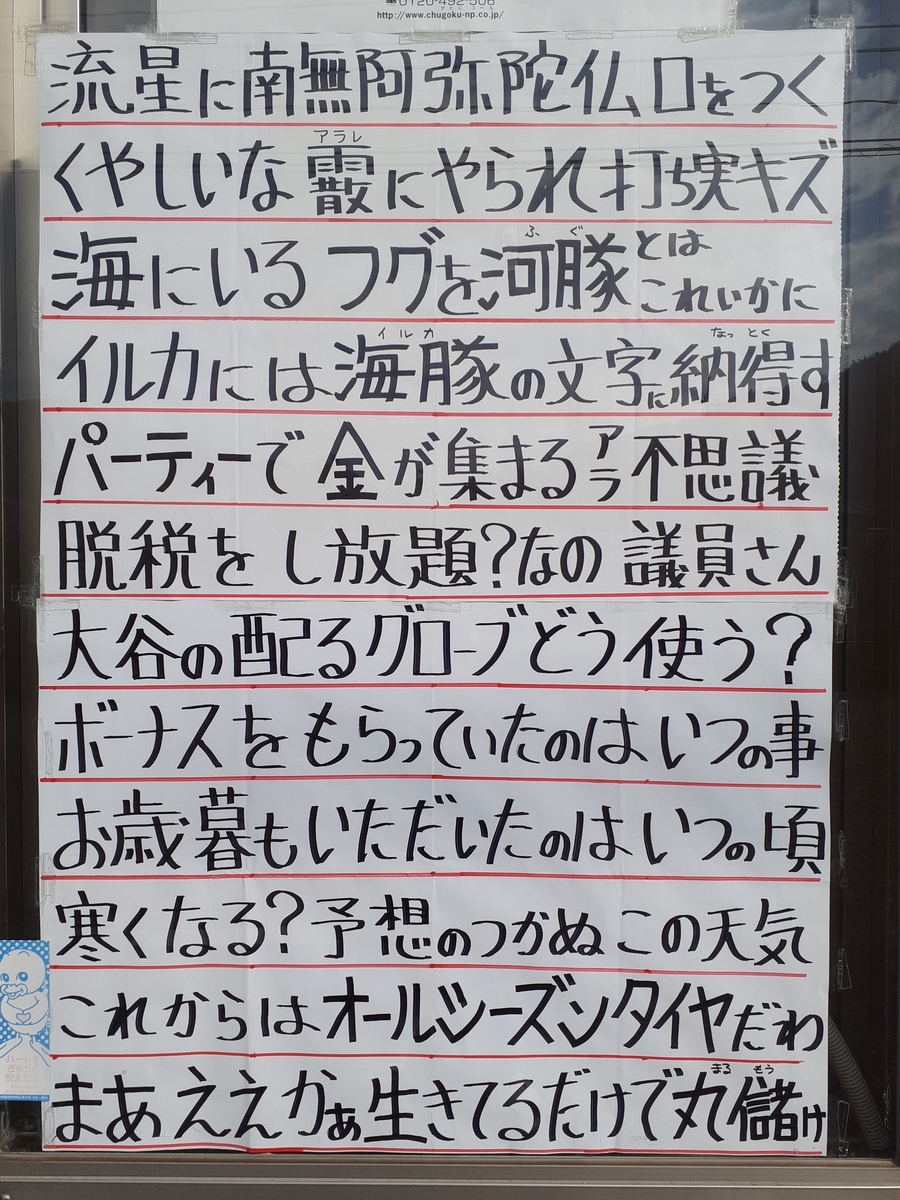 0120-492-506
http://www.chugoku-np.co.jp/
流星に南無阿弥陀仏口をつく
アラレ
くやしいな霰にやられ打ち実キズ
ふぐ
海にいるフグを河豚とはこれいかに
イルカ なっとく
イルカには海豚の文字に納得す
パーティーで金が集まるアラ不思議
脱税をし放題?なの議員さん
大谷の配るグローブどう使う?
ボーナスをもらっていたのはいつの事
お歳暮もいただいたのはいつの頃
寒くなる?予想のつかぬこの天気
これからはオールシーズンタイヤだわ
まる もう
まあええかぁ生きてるだけで丸儲け